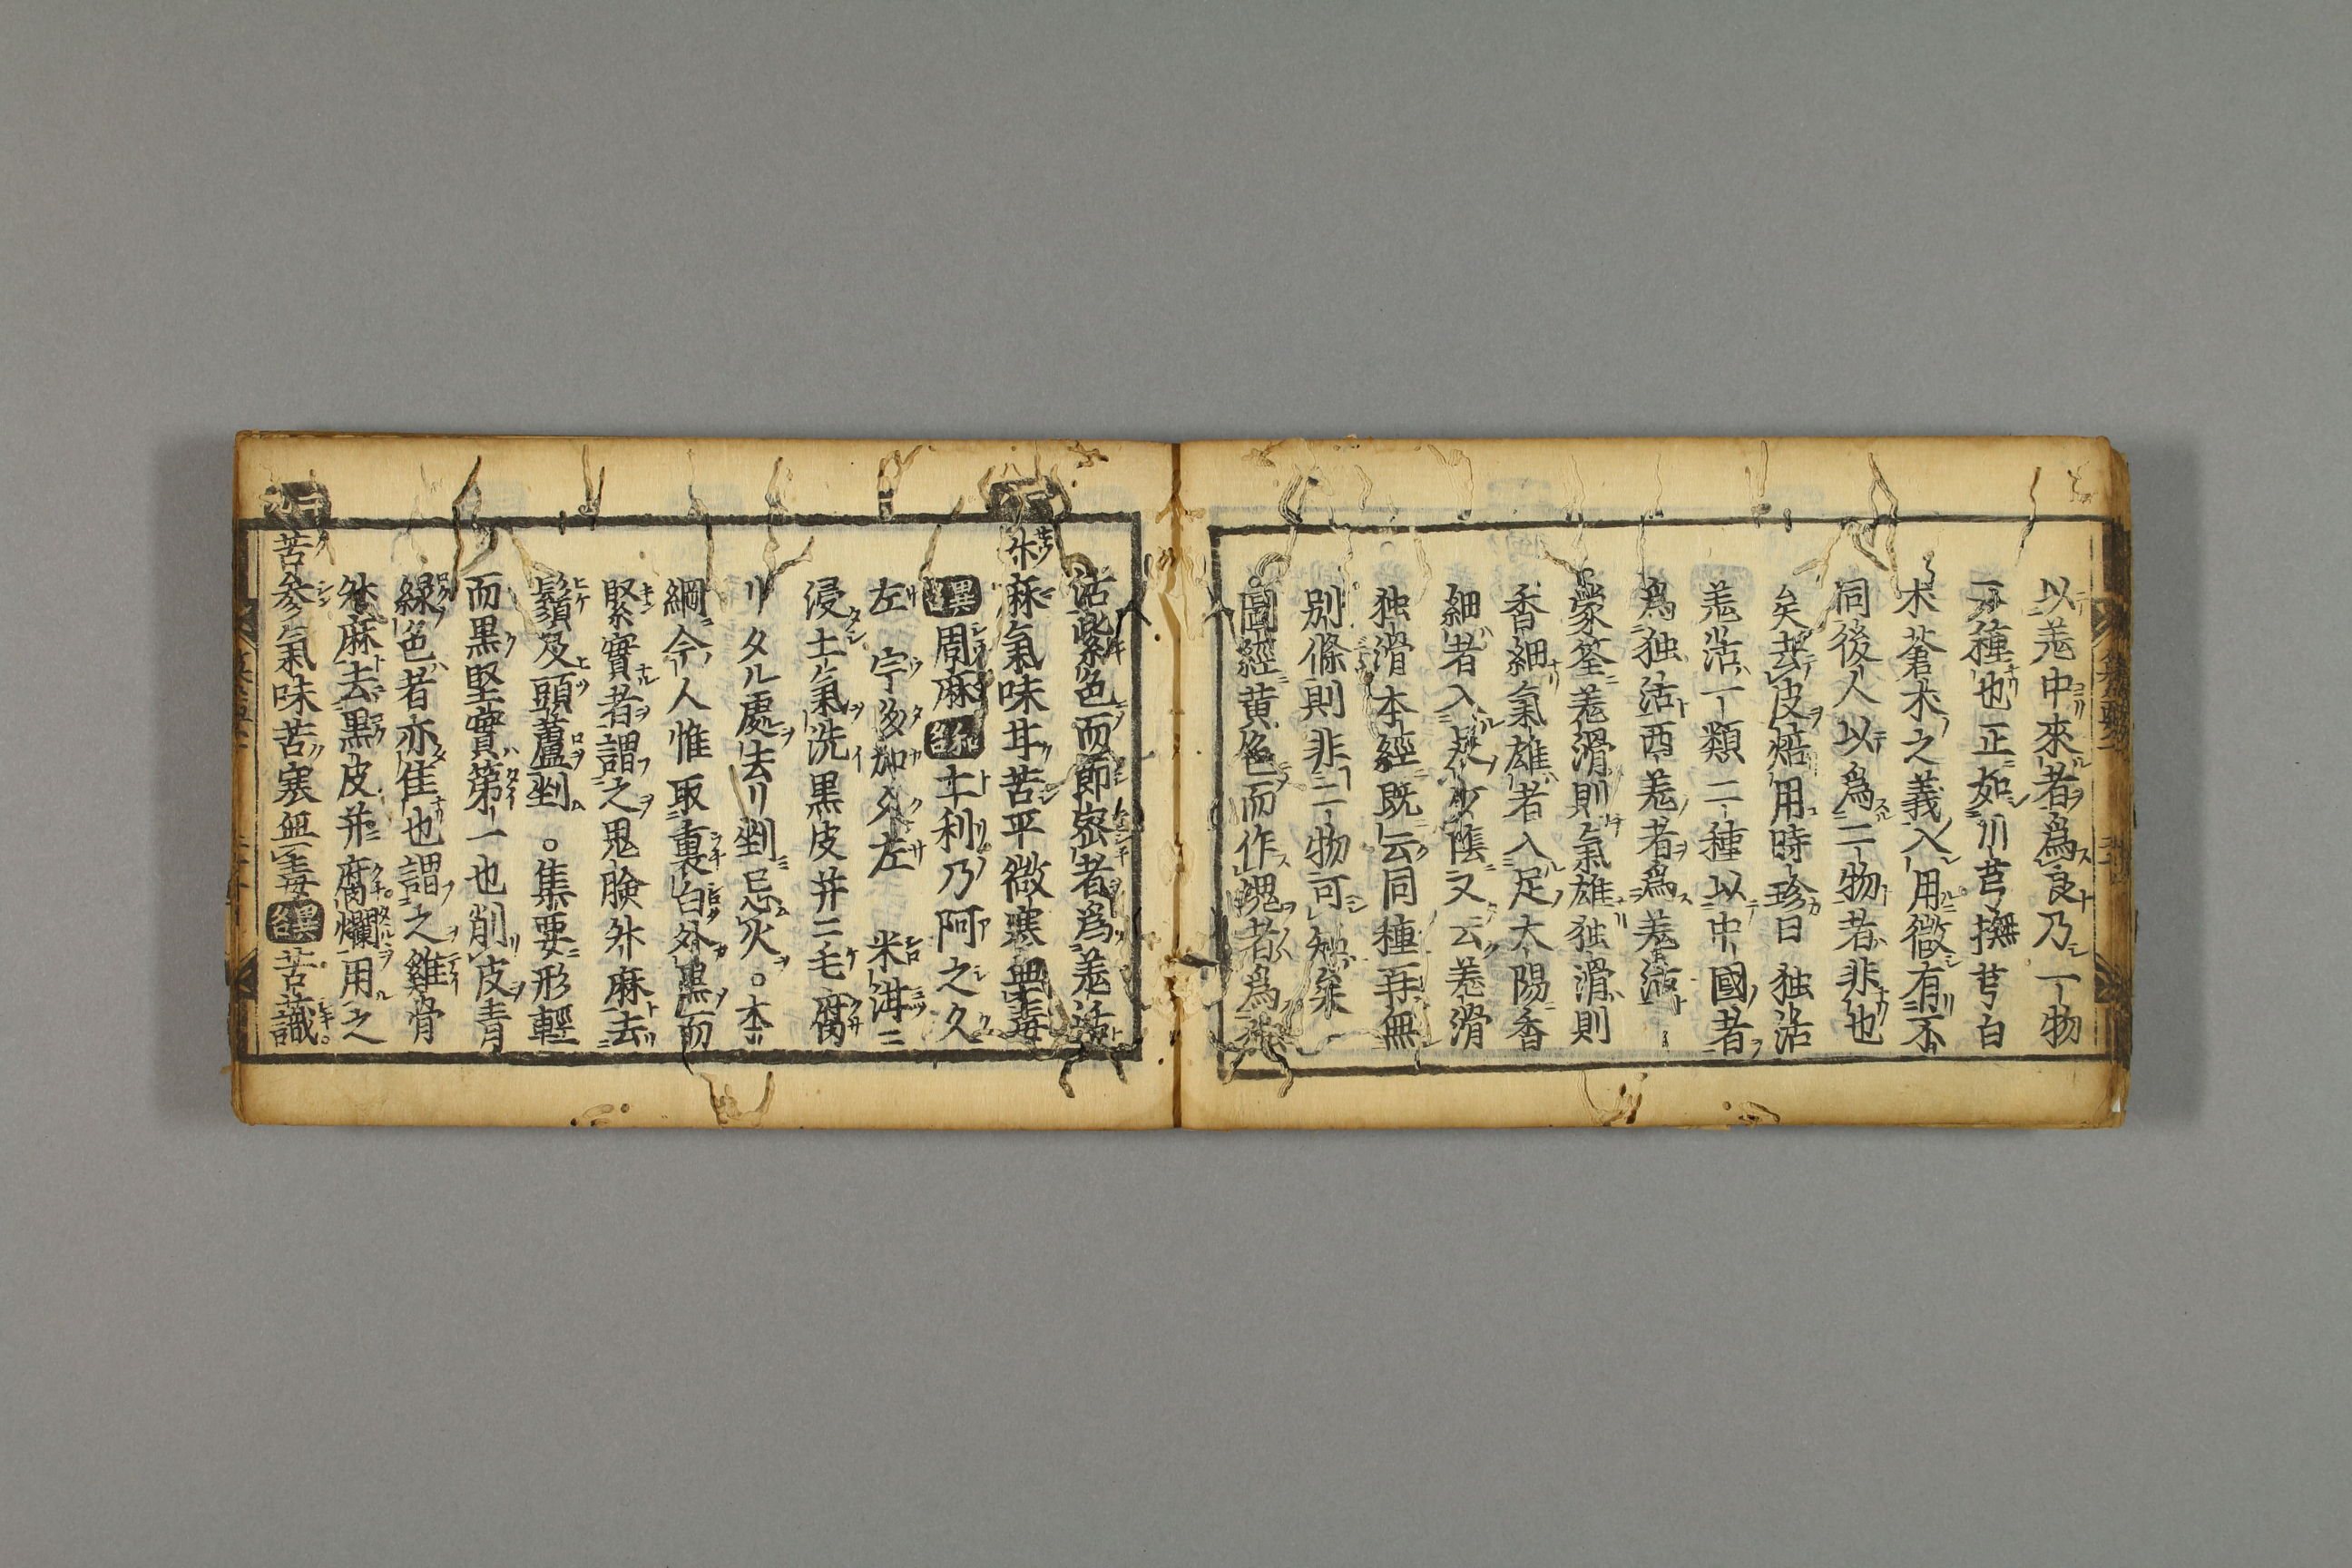 以羗中來者為良乃一物
二種也正如川芎撫芎白
术蒼术之義入用微有不
同後人以為二物者非也
矣去皮焙用時珍曰独活
羗活一類二種以中國者
為独活西羗者為羗活
蒙筌羗滑則氣雄独滑則
香細氣雄者入足太陽香
細者入足少陰又云羗滑
独滑本經既云同種再無
別條則非二物可知矣
圖經黄色而作塊者為独
活紫色而節密者為羗活
升麻氣味甘苦平微寒無毒
異周麻和土利乃阿之久
左 宇多加久左 米泔ニ
浸土氣洗黒皮并ニ毛腐
リタル處去リ剉忌火。本
綱今人惟取裏白外黒而
緊實者謂之鬼臉升麻去
鬚及頭蘆剉。集要形輕
而黒堅實第一也削皮青
緑色者亦佳也謂之雞骨
升麻去黒皮并腐爛用之
苦參氣味苦寒無毒異名苦識